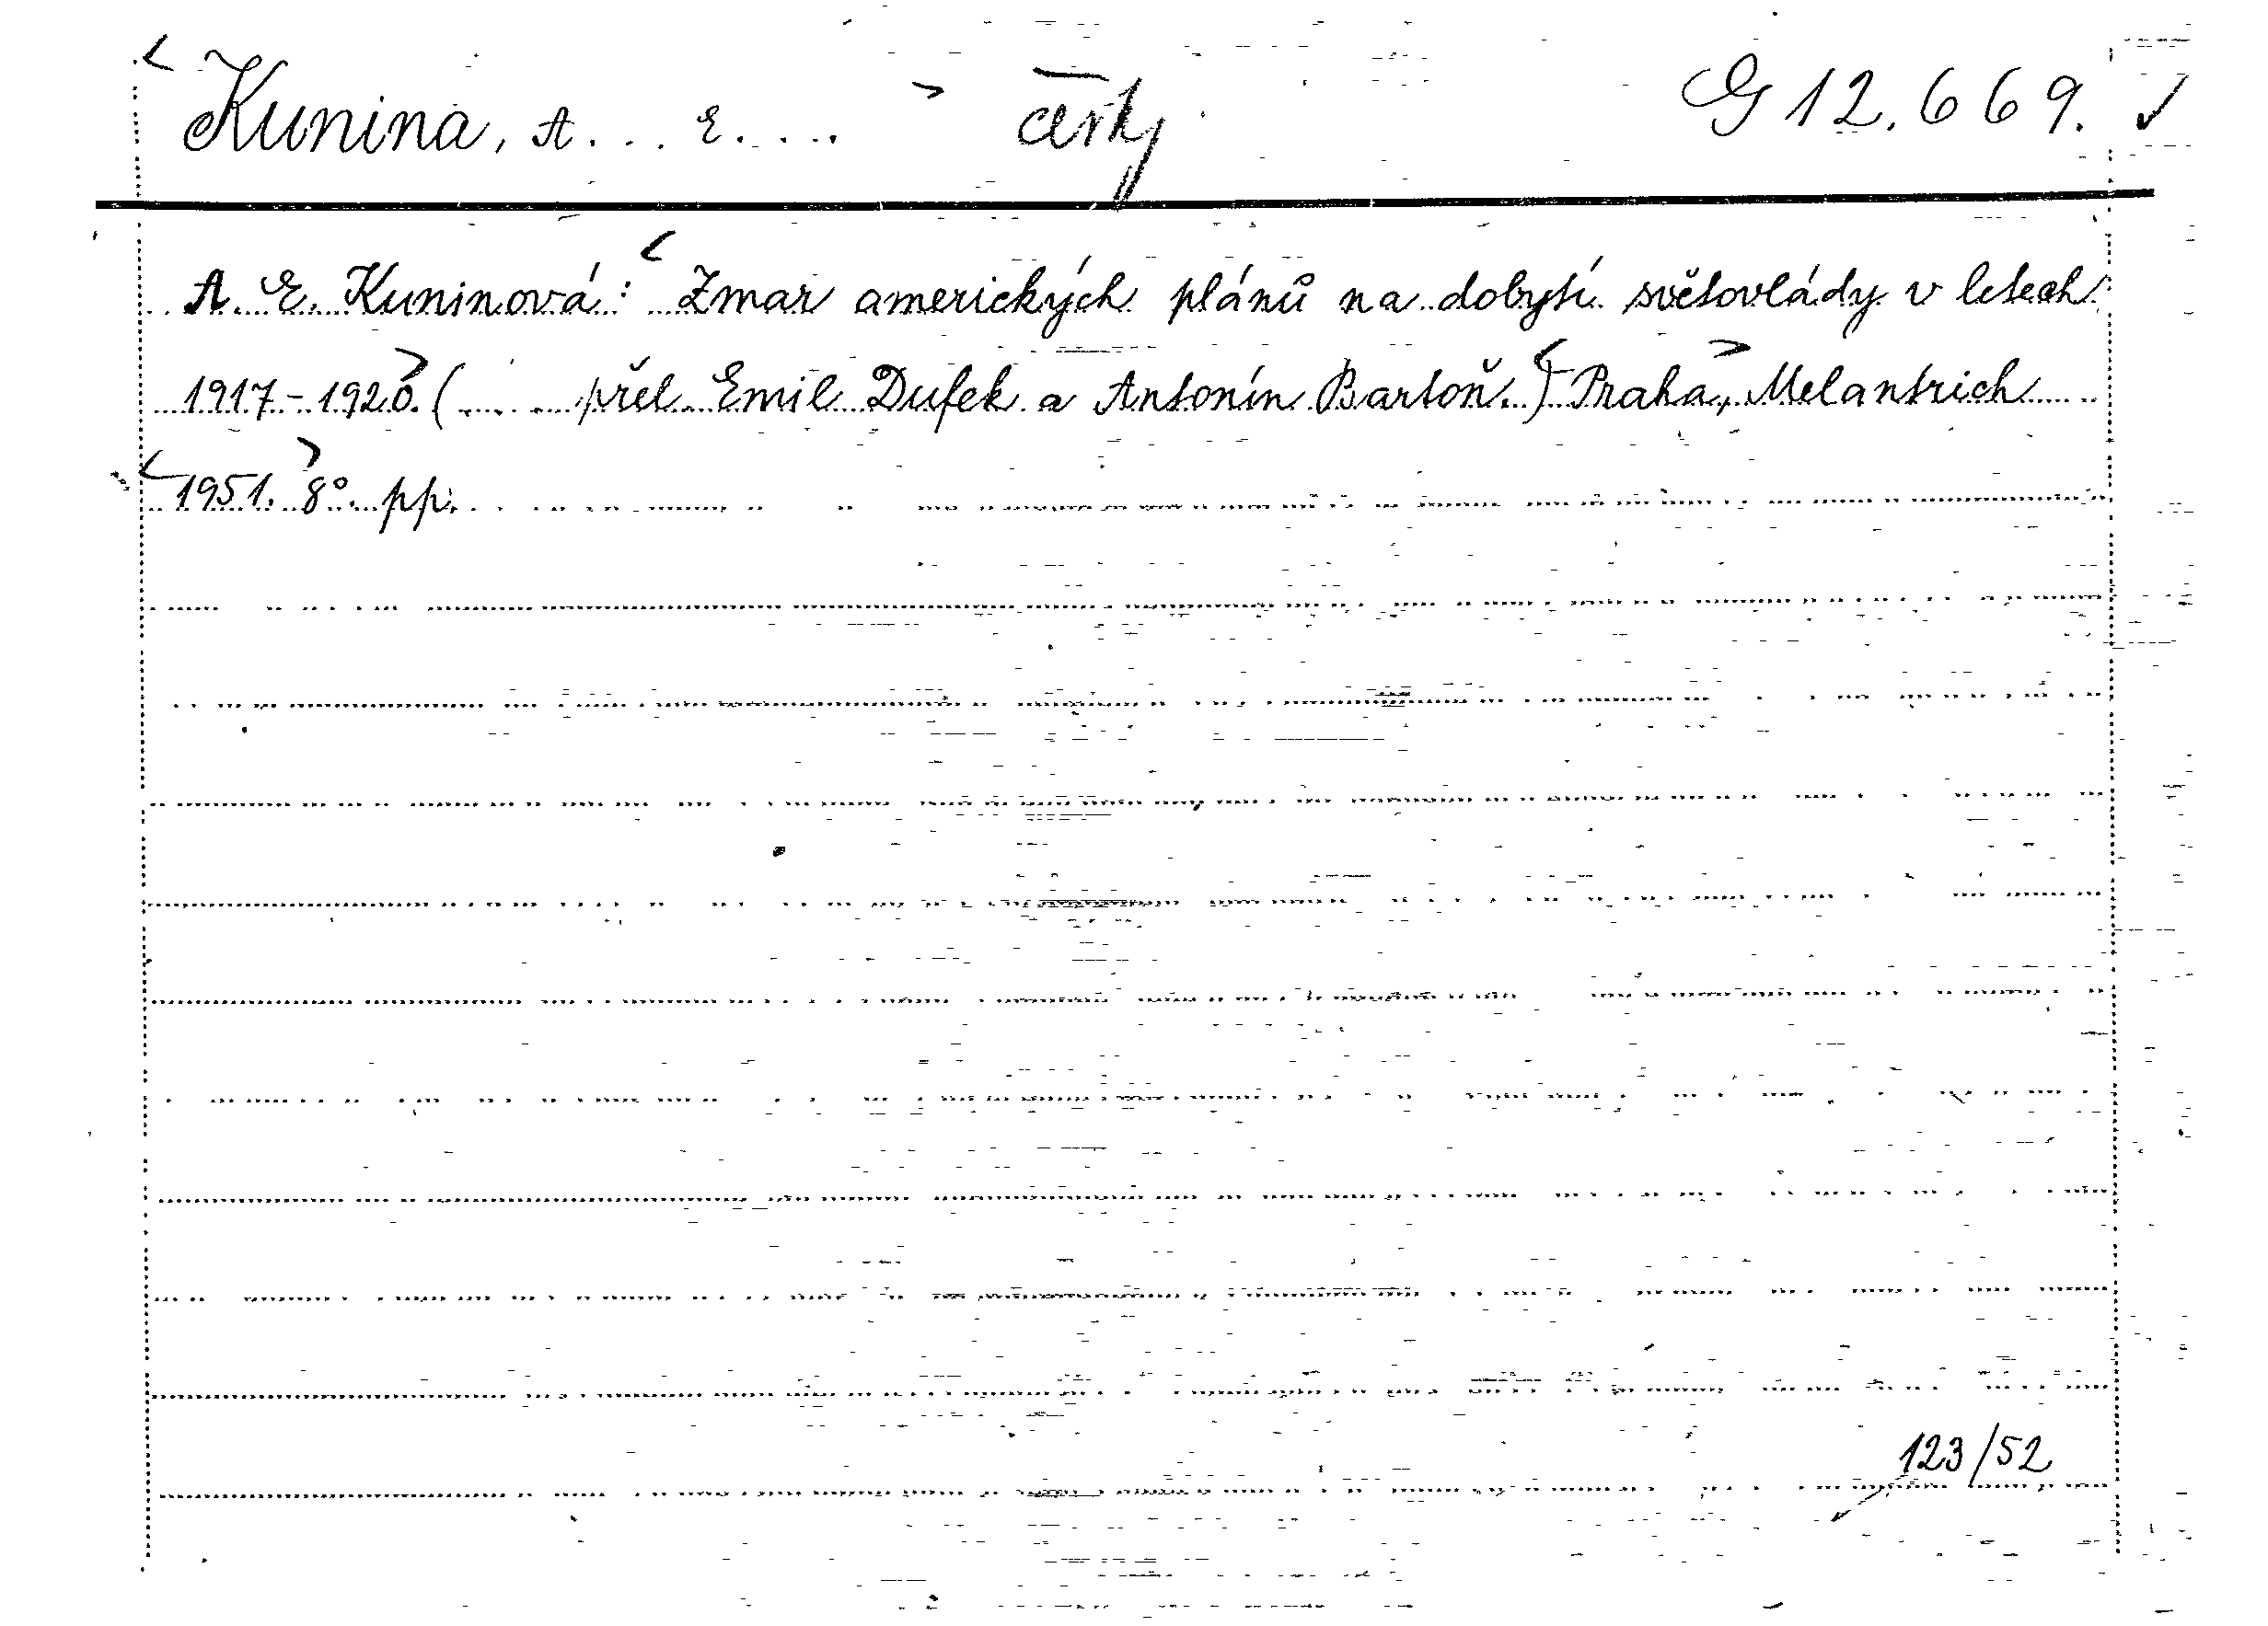 Kunina, A... E.... česky G 12.669.
A. E. Kuninová: Zmar amerických plánů na dobytí světovlády v letech
1917-1920. (..... přel. Emil Dufek a Antonín Bartoň.) Praha, Melantrich
1951. 8°. pp.
123/52